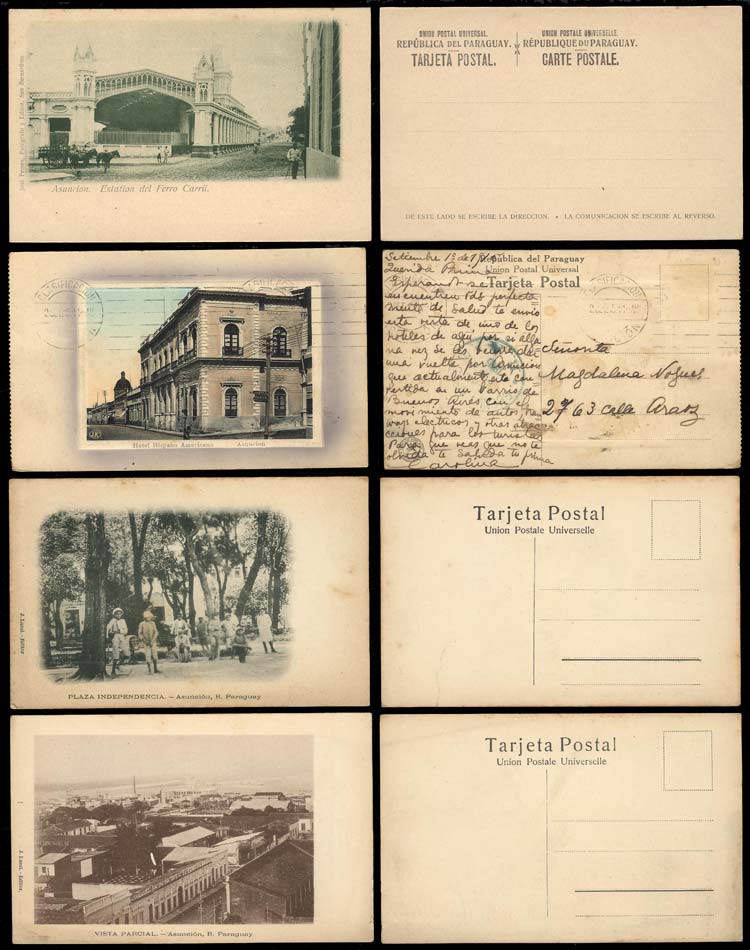 José Peters, Fotógrafo y Editor, San Bernardino
Asuncion. Estation del Ferro Carril.
UNION POSTAL UNIVERSAL.
REPÚBLICA DEL PARAGUAY.
TARJETA POSTAL.
UNION POSTALE UNIVERSELLE.
RÉPUBLIQUE DU PARAGUAY.
CARTE POSTALE.
DE ESTE LADO SE ESCRIBE LA DIRECCION. - LA COMUNICACION SE ESCRIBE AL REVERSO.
CLASIFICACION
Hotel Hispano Americano Asuncion
República del Paraguay
Union Postal Universal
Tarjeta Postal
Setiembre 1º de
Querida Prima
Esperando se
encuentren Uds perfecta
mente de salud te envio
esta vista de uno de los
hoteles de aquí por si
una vuelta por Asuncion
que actualmente esta con
vertida en un barrio de
Buenos Aires con el
movimiento de autos, tran
ways electricos y otras atrac
ciones para los turistas
Para que veas que no te
olvida te saluda tu prima
Carolina
Señorita
Magdalena Nogues
2763 calle Araoz
J. Lanol. - Editor
PLAZA INDEPENDENCIA. — Asunción, R. Paraguay
Tarjeta Postal
Union Postale Universelle
J. Lanol. - Editor.
VISTA PARCIAL. — Asunción, R. Paraguay
Tarjeta Postal
Union Postale Universelle